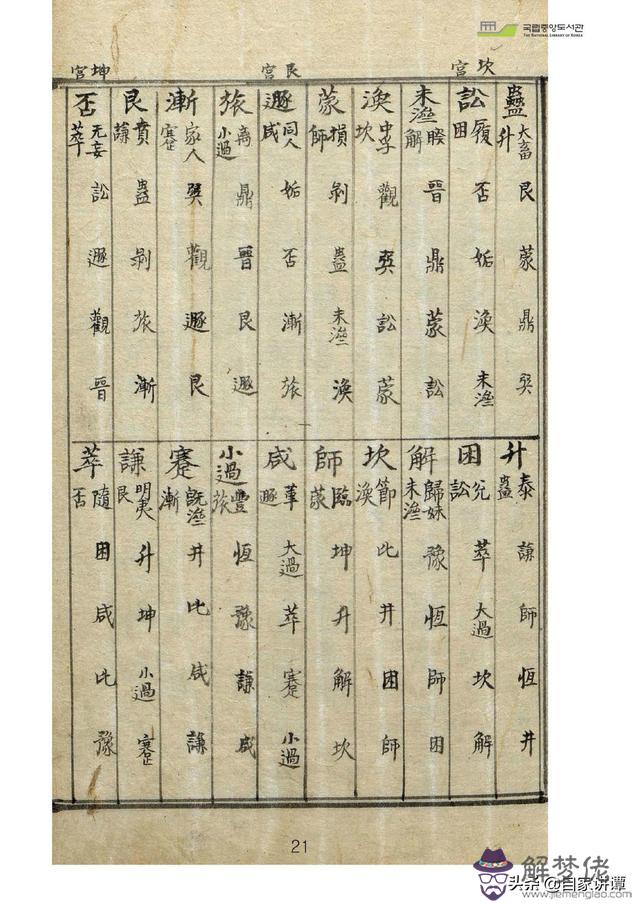 국립중앙도서관
THE NATIONAL LIBRARY OF KOREA
坎宮
艮宮
坤宮
蠱 大畜 升 艮 蒙 鼎 巽
訟 履 困 否 姤 渙 未濟
未濟 睽 解 晉 鼎 蒙 訟
渙 中孚 坎 觀 巽 訟 蒙
蒙 損 師 剝 蠱 未濟 渙
遯 同人 咸 姤 否 漸 旅
旅 离 小過 鼎 晉 艮 遯
漸 家人 蹇 巽 觀 遯 艮
艮 賁 謙 蠱 剝 旅 漸
否 无妄 萃 訟 遯 觀 晉
升 泰 蠱 謙 師 恆 井
困 兌 訟 萃 大過 坎 解
解 歸妹 未濟 豫 恆 師 困
坎 節 渙 比 井 困 師
師 臨 蒙 坤 升 解 坎
咸 革 遯 大過 萃 蹇 小過
小過 豐 旅 恆 豫 謙 咸
蹇 既濟 漸 井 比 咸 謙
謙 明夷 艮 升 坤 小過 蹇
萃 隨 否 困 咸 比 豫
21
解梦佬
头条 @自家讲谭
www.jiemenglao.com